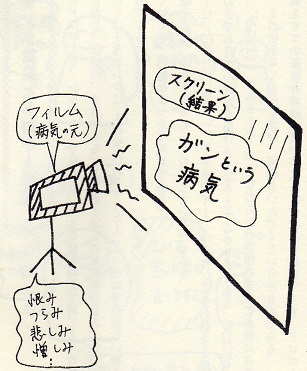 スクリーン
(結果)
ガンという
病気
フィルム
(病気の元)
恨み
つらみ
悲しみ
憎しみ
⋮